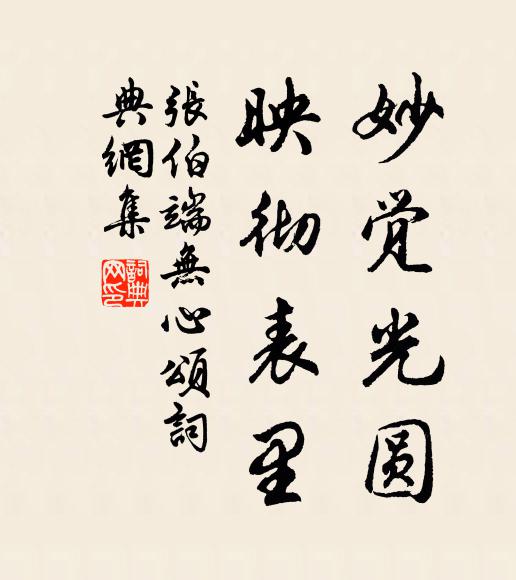 妙觉光圆
映彻表里
張伯端無心頌詞
典網集
詞典
网印